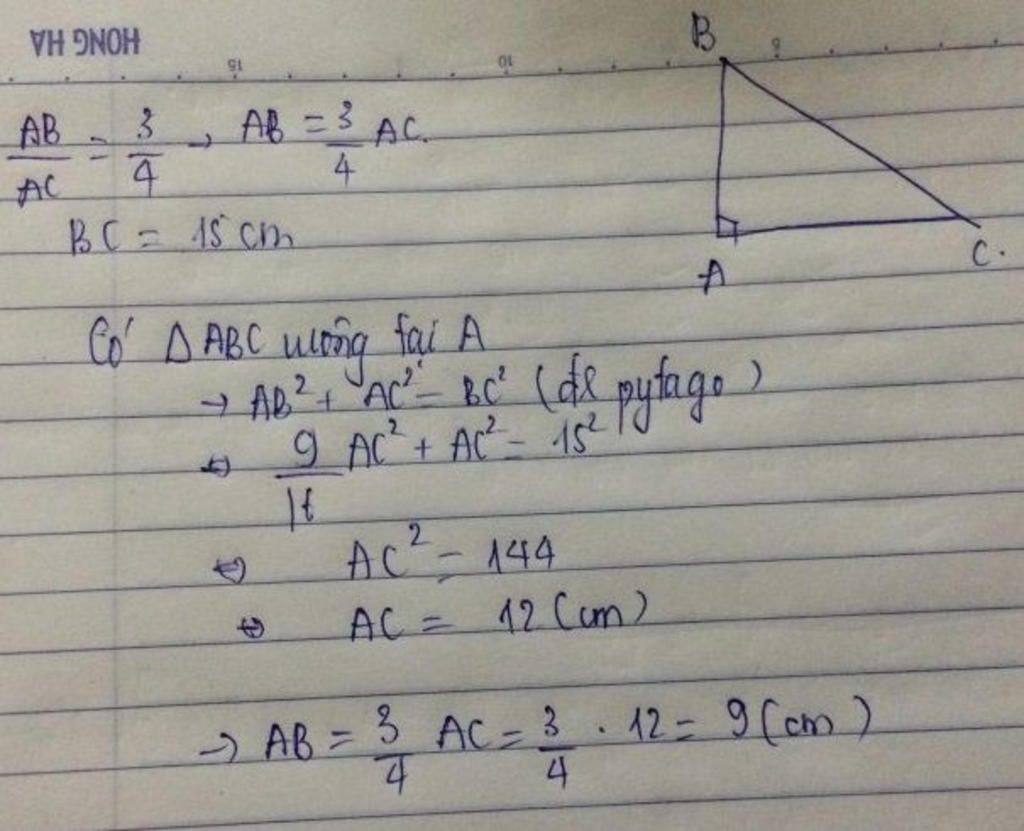 HONG HA
15 10 5
B
AB/AC = 3/4 → AB = 3/4 AC.
BC = 15 cm
A C.
Có Δ ABC vuông tại A
→ AB² + AC² = BC² (đl pytago)
⇔ 9/16 AC² + AC² = 15²
⇔ AC² = 144
⇔ AC = 12 (cm)
→ AB = 3/4 AC = 3/4 . 12 = 9 (cm)